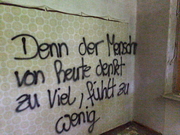 Denn der Mensch
von heute denkt
zu viel, fühlt zu
wenig